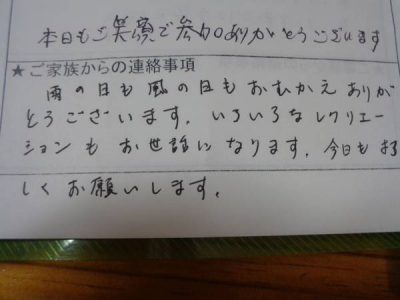 本日もご笑顔で参加ありがとうございます
★ご家族からの連絡事項
雨の日も風の日もおむかえありが
とうございます。いろいろなレクリエー
ションもお世話になります。今日もよろ
しくお願いします。